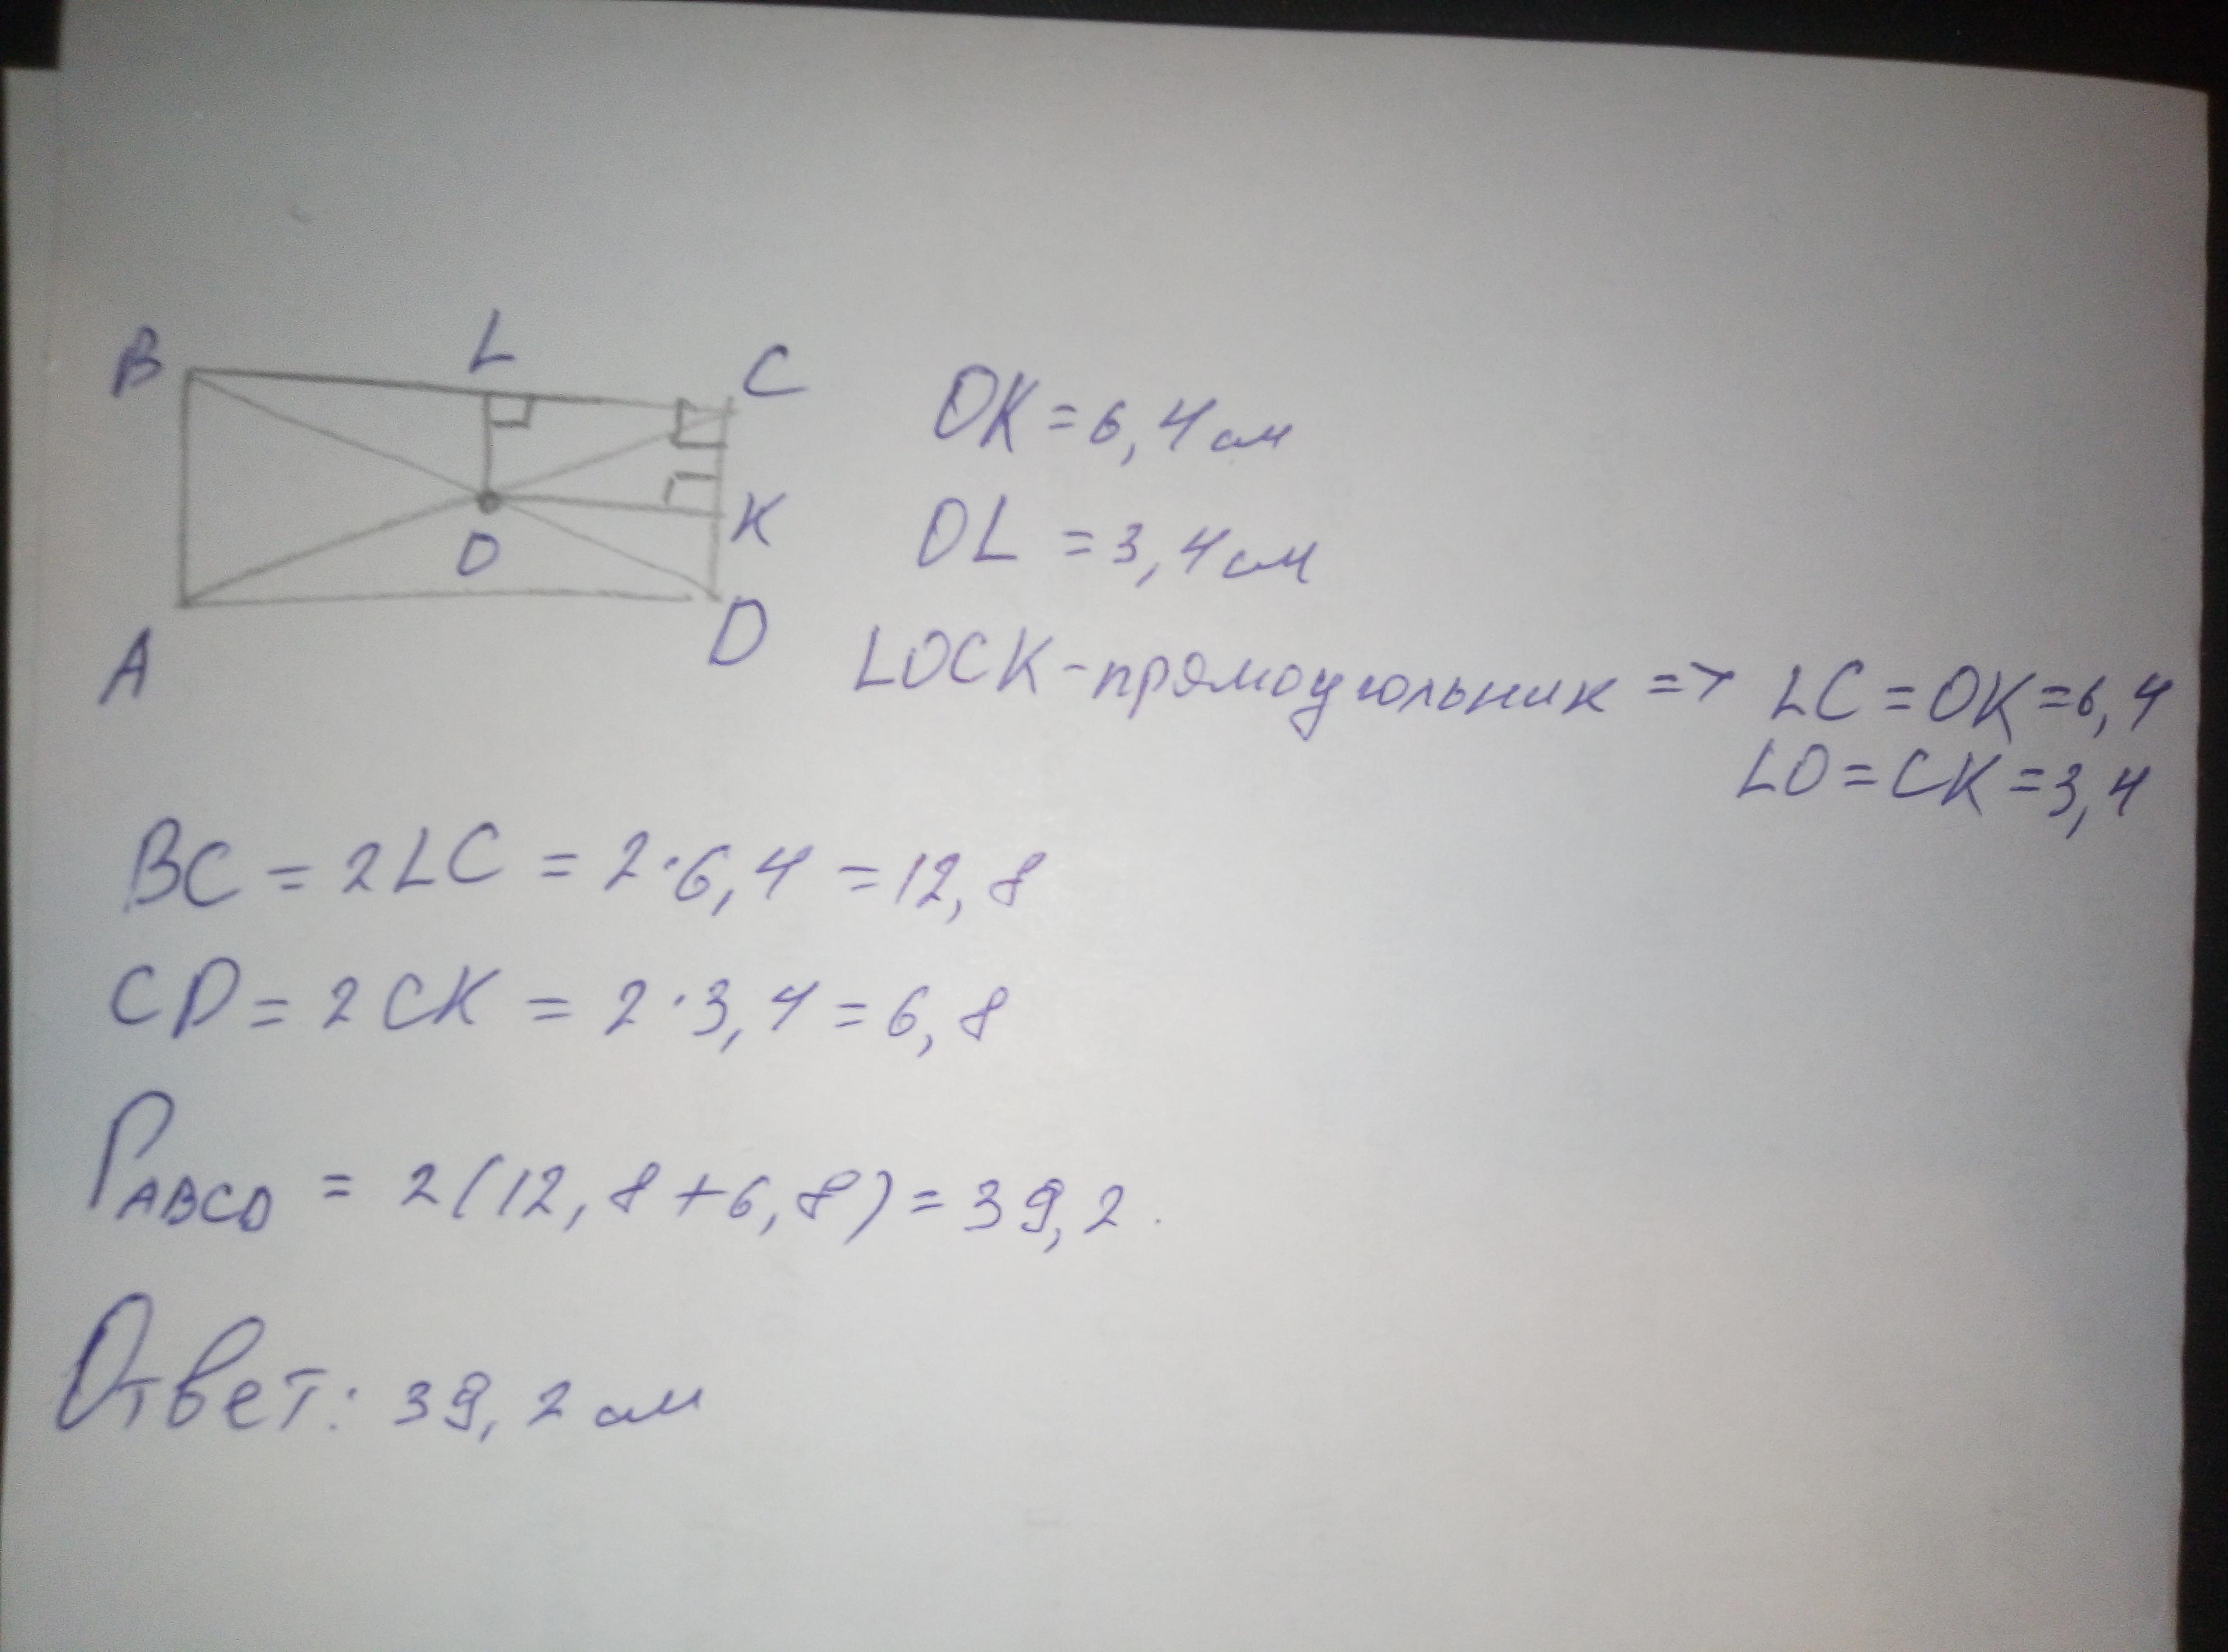 B L C
O K
A D
OK = 6,4 см
OL = 3,4 см
LOCK - прямоугольник => LC = OK = 6,4
LO = CK = 3,4
BC = 2LC = 2·6,4 = 12,8
CD = 2CK = 2·3,4 = 6,8
PABCD = 2(12,8+6,8) = 39,2.
Ответ: 39,2 см